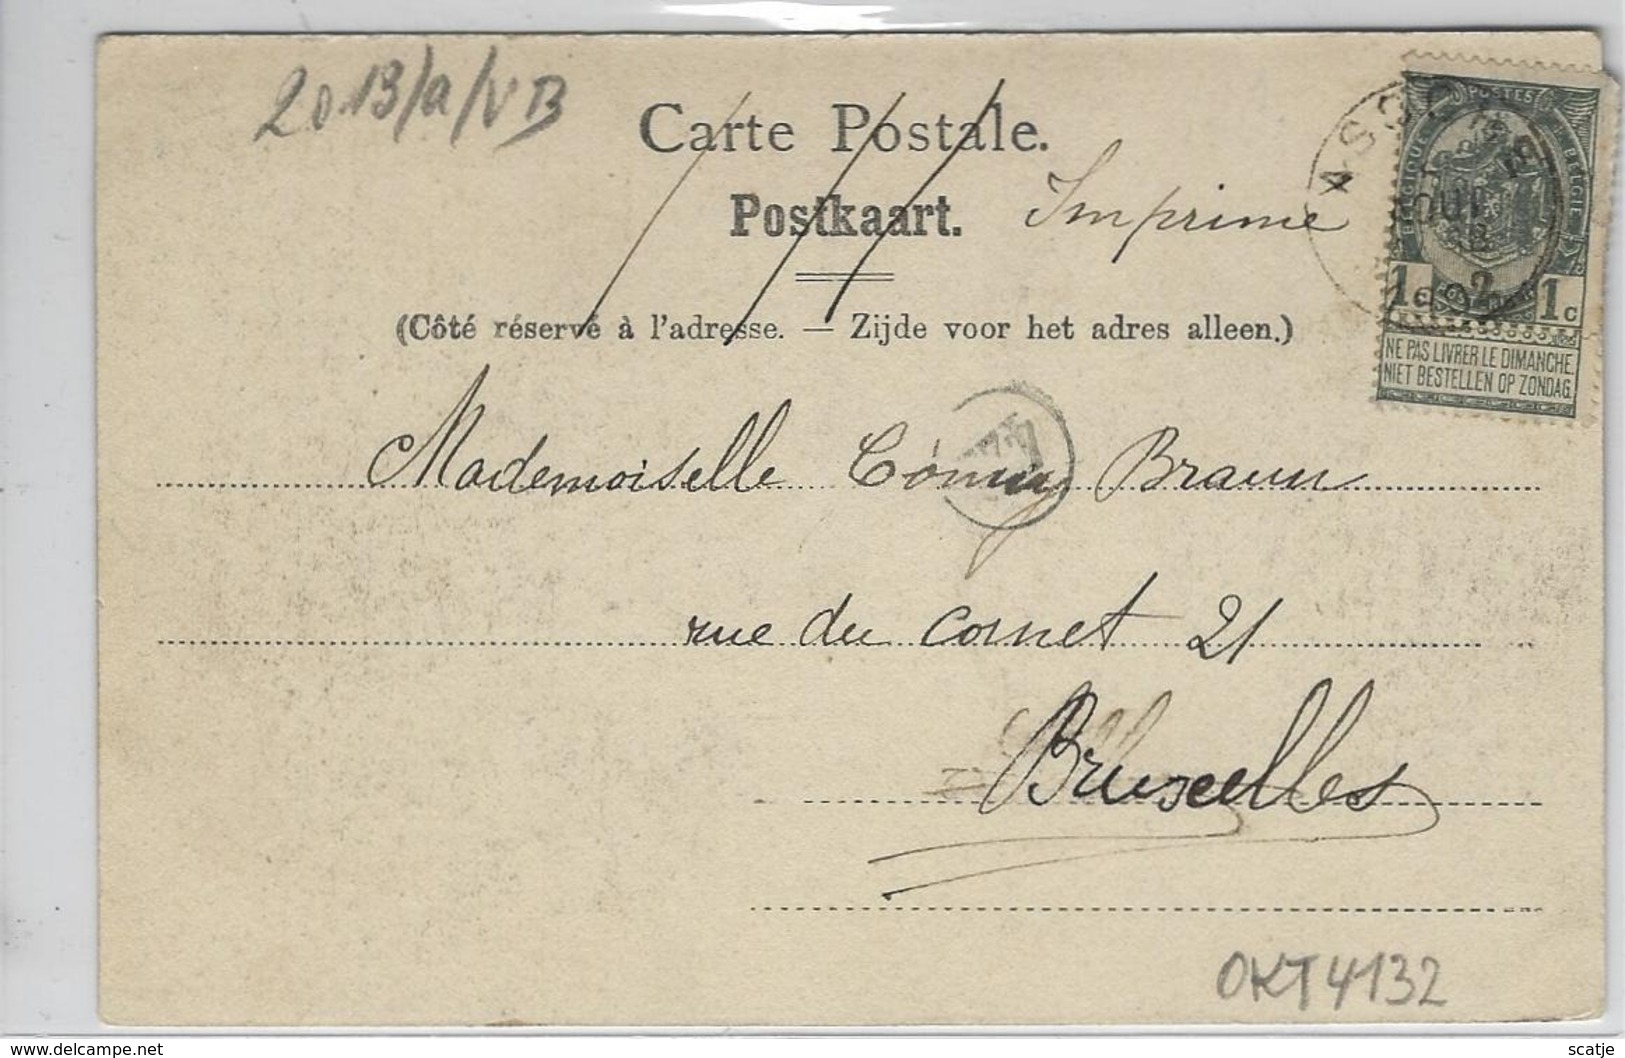 2013/a/VB
Carte Postale.
Postkaart. Imprime
(Côté réservé à l'adresse. — Zijde voor het adres alleen.)
POSTES
BELGIQUE BELGIE
1c 1c
NE PAS LIVRER LE DIMANCHE.
NIET BESTELLEN OP ZONDAG.
1902
Mademoiselle Braun
rue du Cornet 21
Bruxelles
OKT4132
https://www.delcampe.net
scatje